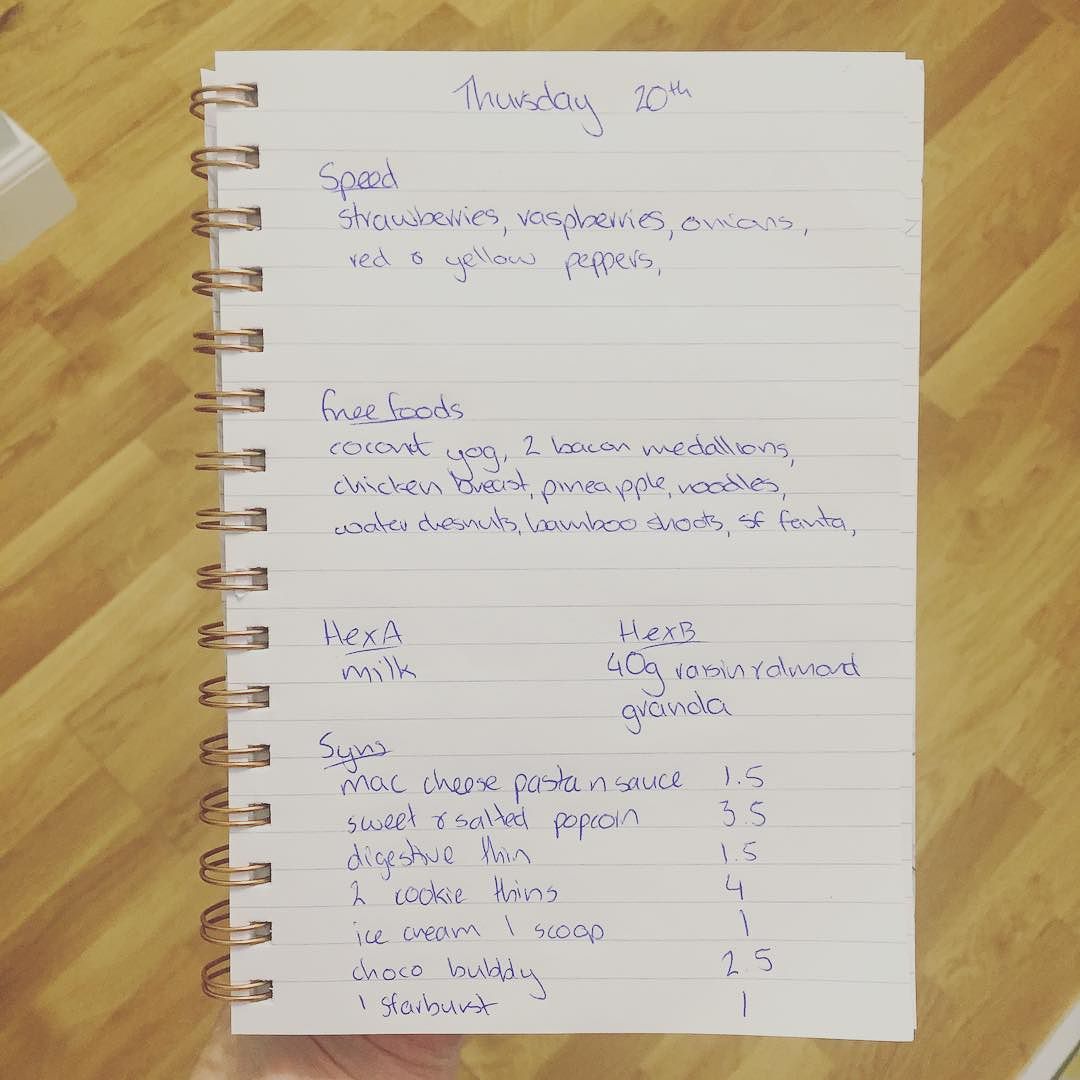 Thursday 20th
Speed
strawberries, raspberries, onions,
red & yellow peppers,
free foods
coconut yog, 2 bacon medallions,
chicken breast, pineapple, noodles,
water chesnuts, bamboo shoots, sf fanta,
HexA HexB
milk 40g raisin & almond
granola
Syns
mac cheese pasta n sauce 1.5
sweet & salted popcorn 3.5
digestive thin 1.5
2 cookie thins 4
ice cream 1 scoop 1
choco bubbly 2.5
1 starburst 1